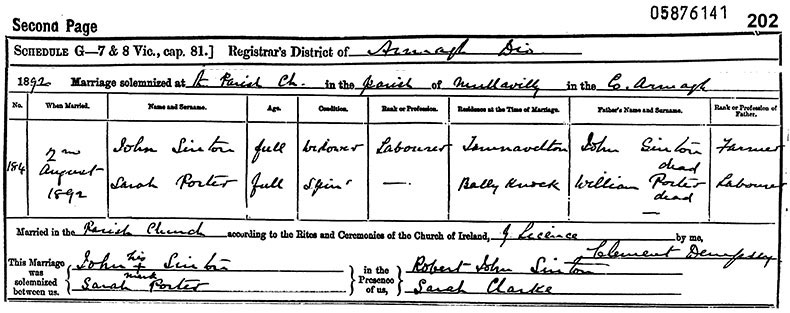 05876141
Second Page 202
SCHEDULE G—7 & 8 Vic., cap. 81.] Registrar's District of Armagh Dio
1892 Marriage solemnized at Parish Ch. in the parish of Mullavilly in the Co. Armagh
No. When Married. Name and Surname. Age. Condition. Rank or Profession. Residence at the Time of Marriage. Father's Name and Surname. Rank or Profession of Father.
184 2nd August 1892 John Sinton full Widower Labourer Tamnavelton John Sinton dead Farmer
Sarah Porter full Spinr —. Bally Knock William Porter dead Labourer
—
Married in the Parish Church according to the Rites and Ceremonies of the Church of Ireland, by Licence by me,
Clement Dempsey
This Marriage was solemnized between us, John his x mark Sinton in the Presence of us, Robert John Sinton
Sarah Porter Sarah Clarke